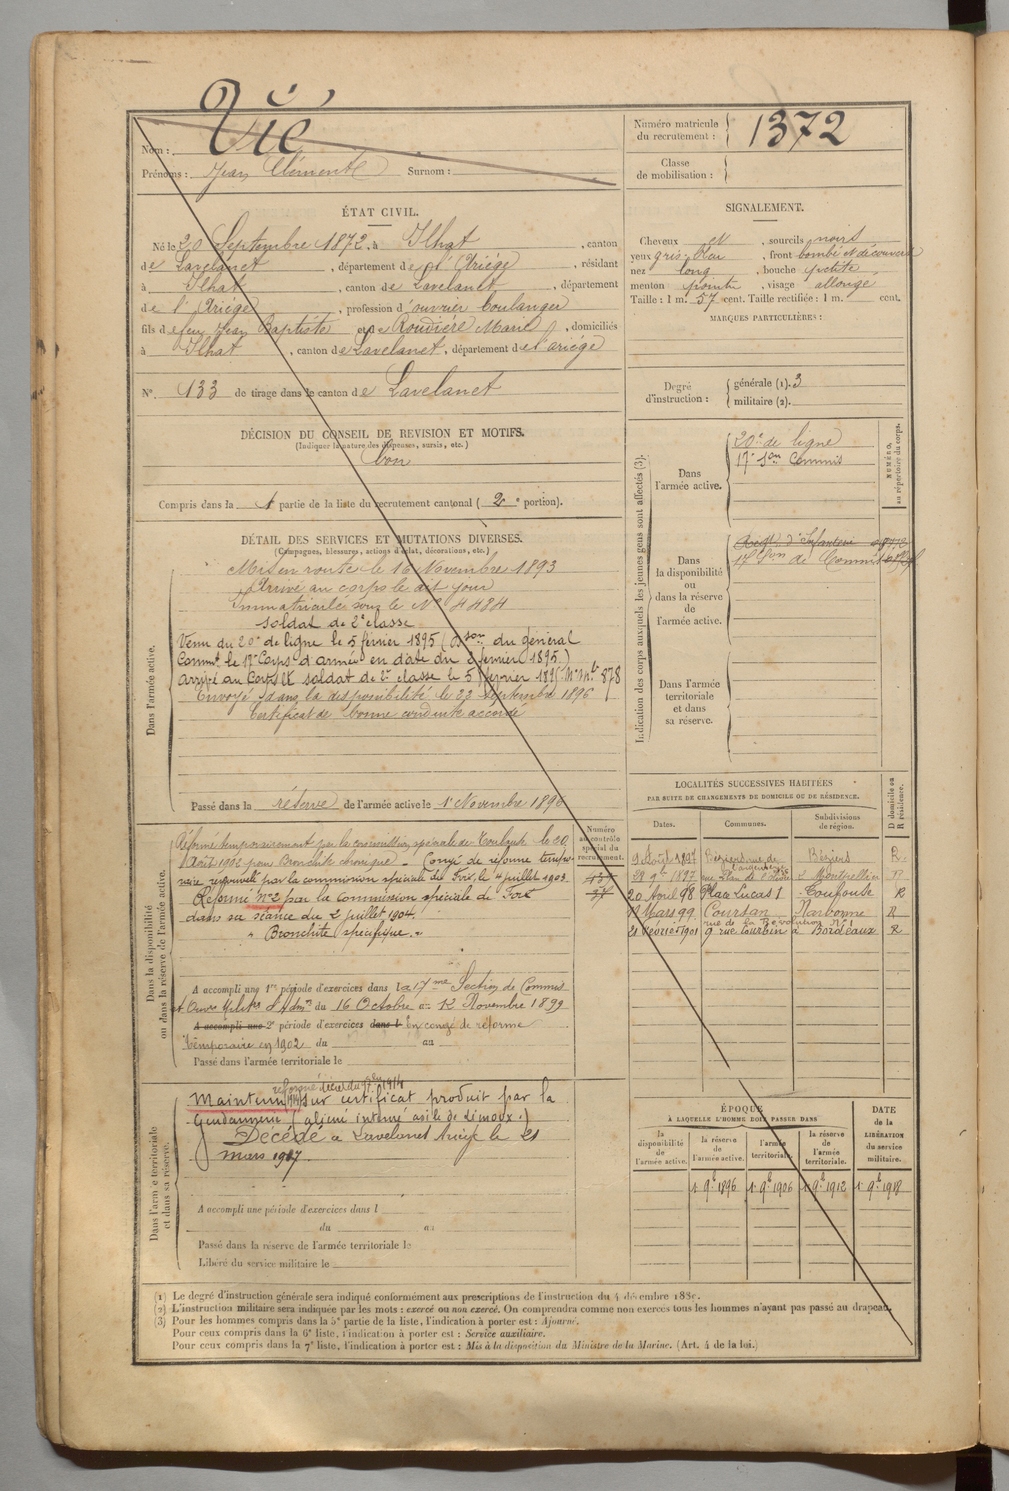 Vié
Nom :
Prénoms : Jean Clément Surnom :
Numéro matricule du recrutement : 1372
Classe de mobilisation :
ÉTAT CIVIL.
Né le 20 Septembre 1872, à Ilhat, canton
de Lavelanet, département de l'Ariége, résidant
à Ilhat, canton de Lavelanet, département
de l'Ariége, profession d'ouvrier boulanger
fils de feu Jean Baptiste et de Roudière Marie, domiciliés
à Ilhat, canton de Lavelanet, département de l'ariége
N° 133 de tirage dans le canton de Lavelanet
SIGNALEMENT.
Cheveux et, sourcils noirs
yeux gris bleu, front bombé et découvert
nez long, bouche petite
menton pointu, visage allongé
Taille : 1 m. 57 cent. Taille rectifiée : 1 m. cent.
MARQUES PARTICULIÈRES :
Degré d'instruction : générale (1). 3
militaire (2).
DÉCISION DU CONSEIL DE REVISION ET MOTIFS.
(Indiquer la nature des dispenses, sursis, etc.)
bon
Compris dans la 1 partie de la liste du recrutement cantonal (2e portion).
DÉTAIL DES SERVICES ET MUTATIONS DIVERSES.
(Campagnes, blessures, actions d'éclat, décorations, etc.)
Dans l'armée active.
Mis en route le 16 Novembre 1893
Arrivé au corps le dit jour
Immatriculé sous le N° 4484
soldat de 2e classe
Venu du 20e de ligne le 5 février 1895 (Dson du général
Commt le 17e Corps d'armée en date du 2 février 1895)
arrivé au Corps et soldat de 2e classe le 5 février 1895 Mle 878
Envoyé dans la disponibilité le 22 Septembre 1896
Certificat de bonne conduite accordé
Passé dans la réserve de l'armée active le 1er Novembre 1896
Indication des corps auxquels les jeunes gens sont affectés (3).
NUMÉRO, au répertoire du corps.
Dans l'armée active.
20e de ligne
17e Son Commis
Dans la disponibilité ou dans la réserve de l'armée active.
Regt d'Infanterie
17e Son de Commis
Dans l'armée territoriale et dans sa réserve.
LOCALITÉS SUCCESSIVES HABITÉES
PAR SUITE DE CHANGEMENTS DE DOMICILE OU DE RÉSIDENCE.
Dates. Communes. Subdivisions de région. D domicile ou R résidence.
9 Août 1897 Béziers rue de l'argenterie Béziers R.
28 9bre 1897 Montpellier R
20 Avril 98 Place Lucas 1 Toulouse R
12 Mars 99 Coursan Narbonne R
rue de la Révolution N° 1
21 Février 1901 9 rue Courbin à Bordeaux R
Numéro au contrôle spécial du recrutement.
Dans la disponibilité ou dans la réserve de l'armée active.
Réformé temporairement par la commission spéciale de Toulouse le 20
Août 1902 pour Bronchite chronique. Congé de réforme tempo-
raire renouvelé par la commission spéciale de Foix, le 4 juillet 1903
Réformé N° 2 par la Commission spéciale de Foix
dans sa séance du 2 juillet 1904.
" Bronchite spécifique. "
A accompli une 1re période d'exercices dans la 17me Section de Commis
et Ouvrs Milites d'Admon du 16 Octobre au 12 Novembre 1899
A accompli une 2e période d'exercices dans l En congé de réforme
temporaire en 1902 du au
Passé dans l'armée territoriale le
Dans l'armée territoriale et dans sa réserve.
Maintenu réformé décret du 9 7bre 1914 sur certificat produit par la
Gendarmerie (aliéné interné asile de Limoux.)
Décédé à Lavelanet Ariège le 21
mars 1917.
A accompli une période d'exercices dans l
du au
Passé dans la réserve de l'armée territoriale le
Libéré du service militaire le
ÉPOQUE
À LAQUELLE L'HOMME DOIT PASSER DANS
la disponibilité de l'armée active. la réserve de l'armée active. l'armée territoriale. la réserve de l'armée territoriale. DATE de la LIBÉRATION du service militaire.
1er 9bre 1896 1er 9bre 1906 1er 9bre 1912 1er 9bre 1918
(1) Le degré d'instruction générale sera indiqué conformément aux prescriptions de l'instruction du 4 décembre 1889.
(2) L'instruction militaire sera indiquée par les mots : exercé ou non exercé. On comprendra comme non exercés tous les hommes n'ayant pas passé au drapeau.
(3) Pour les hommes compris dans la 5e partie de la liste, l'indication à porter est : Ajourné.
Pour ceux compris dans la 6e liste, l'indication à porter est : Service auxiliaire.
Pour ceux compris dans la 7e liste, l'indication à porter est : Mis à la disposition du Ministre de la Marine. (Art. 4 de la loi.)